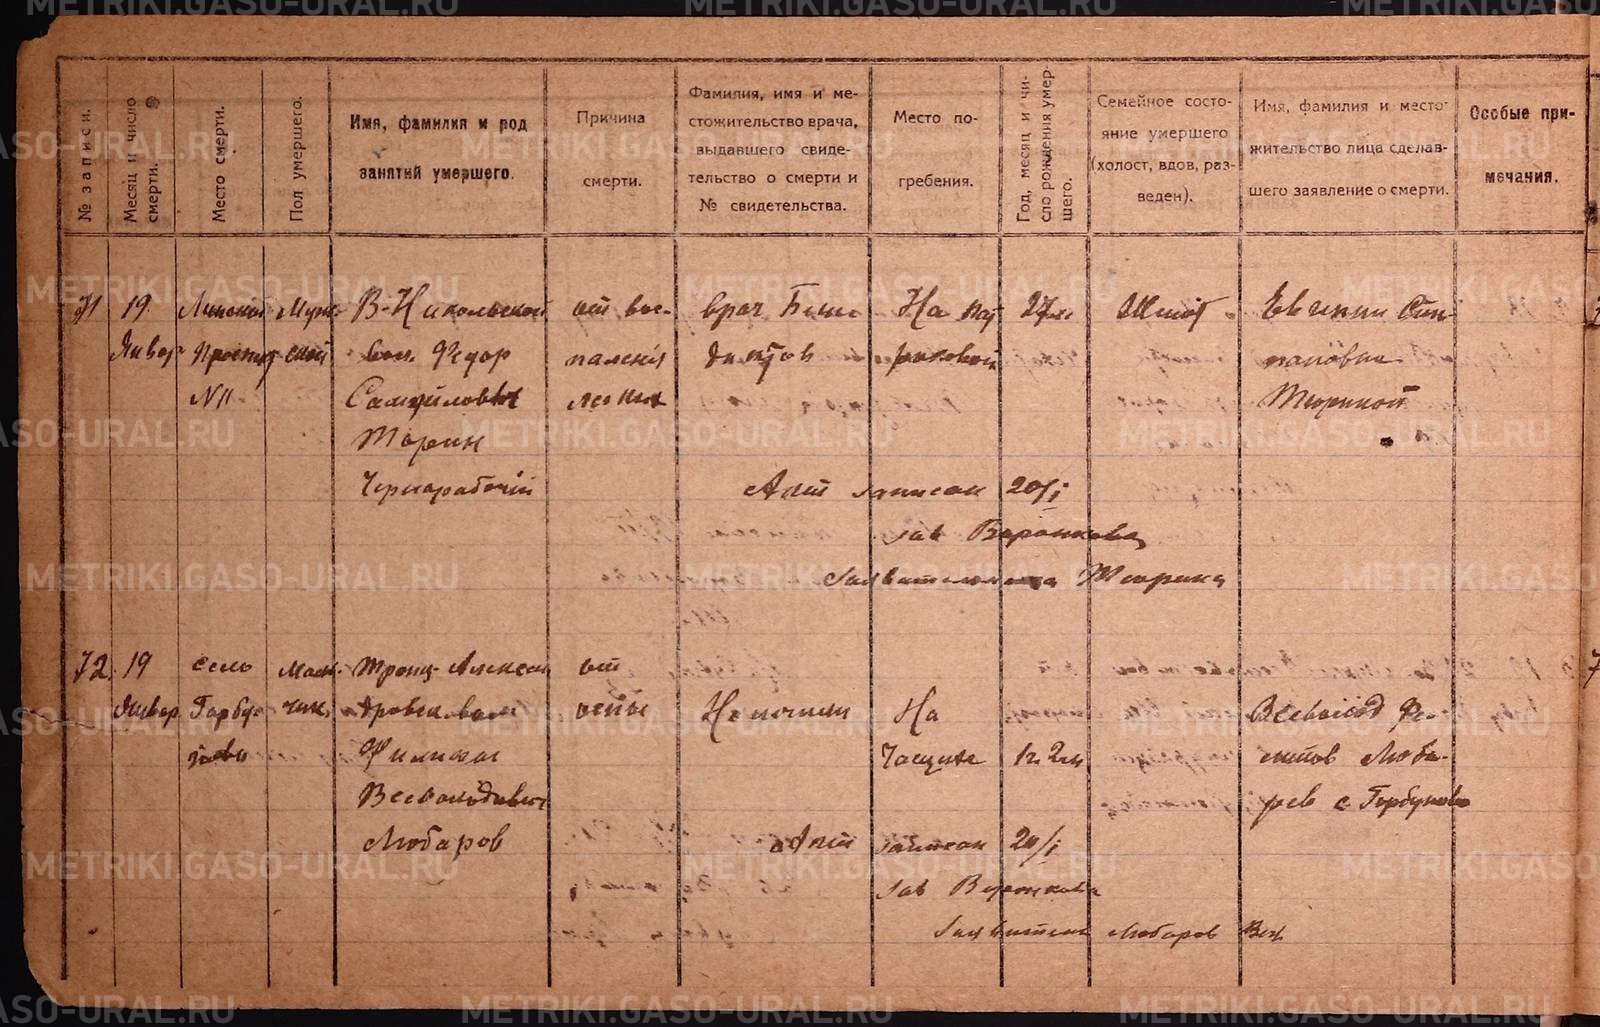 METRIKI.GASO-URAL.RU
№ записи.
Месяц и число смерти.
Место смерти.
Пол умершего.
Имя, фамилия и род
занятий умершего.
Причина
смерти.
Фамилия, имя и ме-
стожительство врача,
выдавшего свиде-
тельство о смерти и
№ свидетельства.
Место по-
гребения.
Год, месяц и чи-
сло рождения умер-
шего.
Семейное состо-
яние умершего
(холост, вдов, раз-
веден).
Имя, фамилия и место-
жительство лица сделав-
шего заявление о смерти.
Особые при-
мечания.
71
19
Январ
Муж-
ской
В-Никольской
вол. Федор
Самуилович
Тюрин
Чернорабочий
от вос-
паления
легких
врач
На
27 л.
Женат
Евгении Сти-
пановны
Тюриной
Акт записан 20/I
Зав Воронкова
Заявительница Тюрина
72.
19
Январ
село
Горбу-
ново
Маль-
чик
Троиц-Алексан
дровск вол
Филипп
Всеволодович
Любаров
от
оспы
Не лечили
На
1 г. 2 м
Всеволод Фе-
Люба-
ров с Горбуново
Акт записан 20/I
Зав Воронкова
Заявитель Любаров Вс